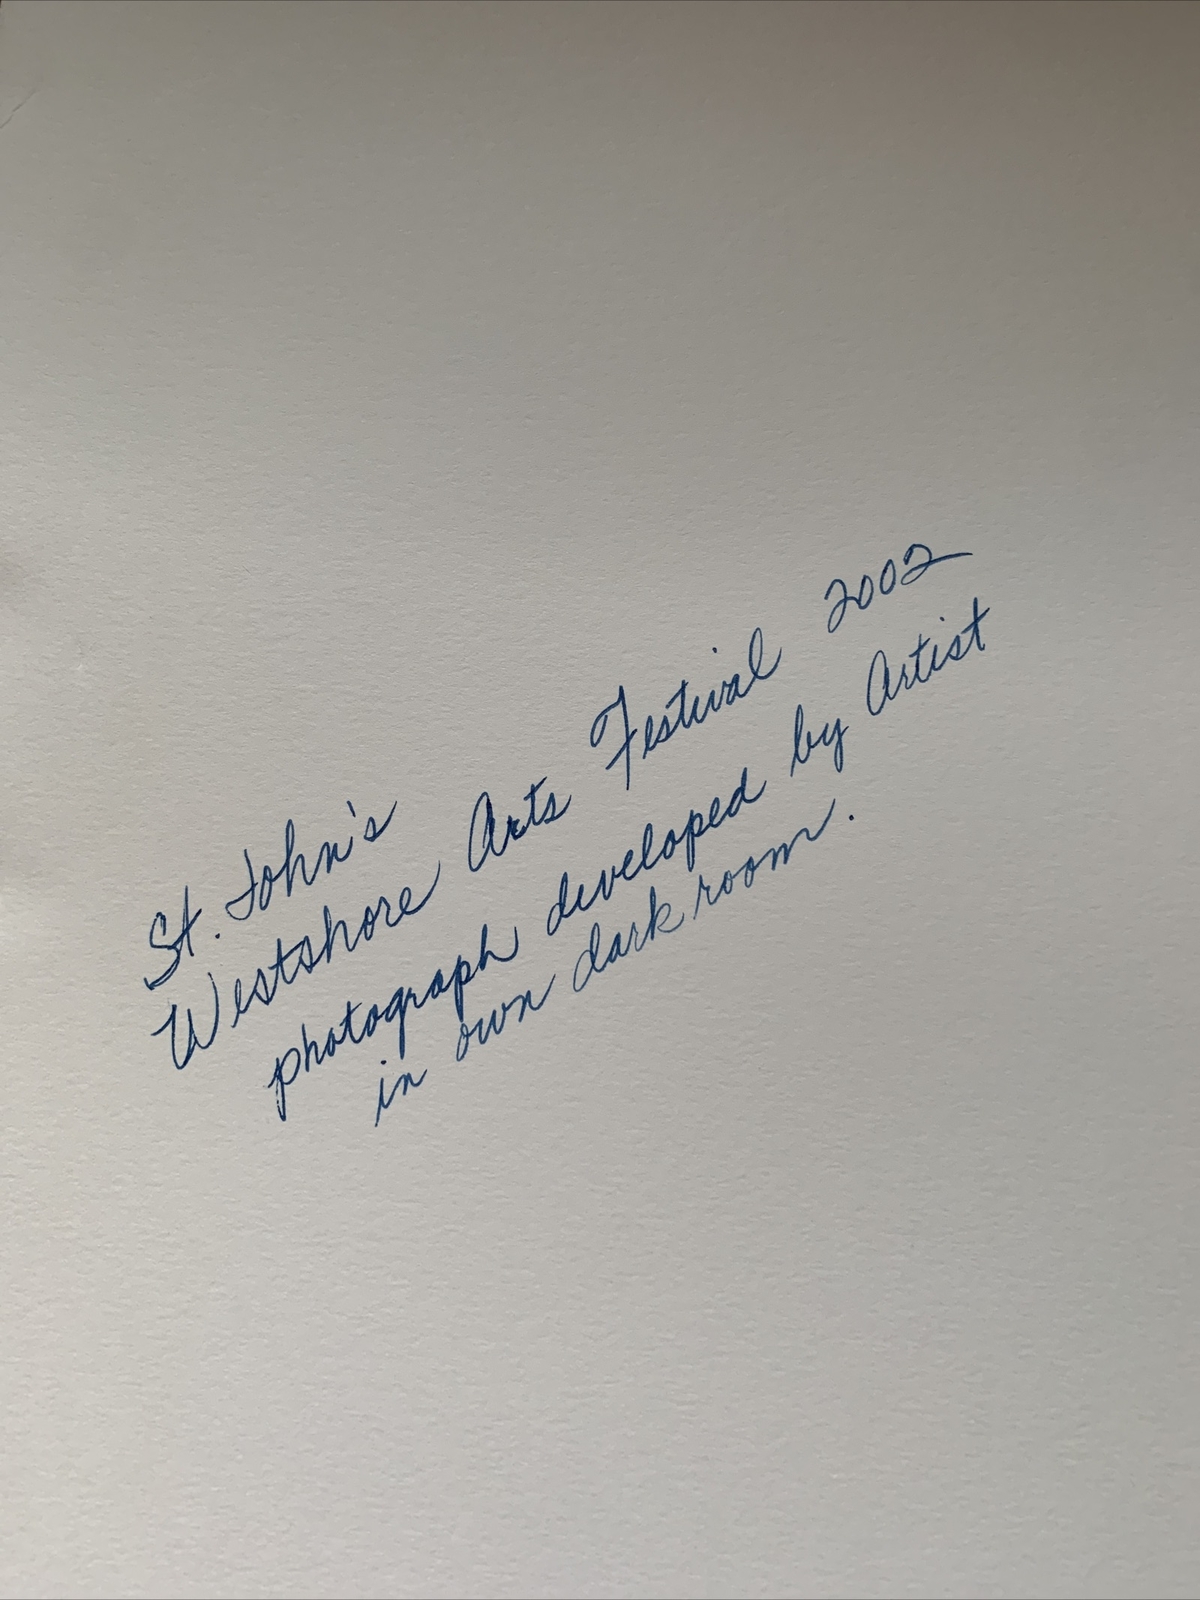 St. John's
Westshore Arts Festival 2002
photograph developed by Artist
in own dark room.